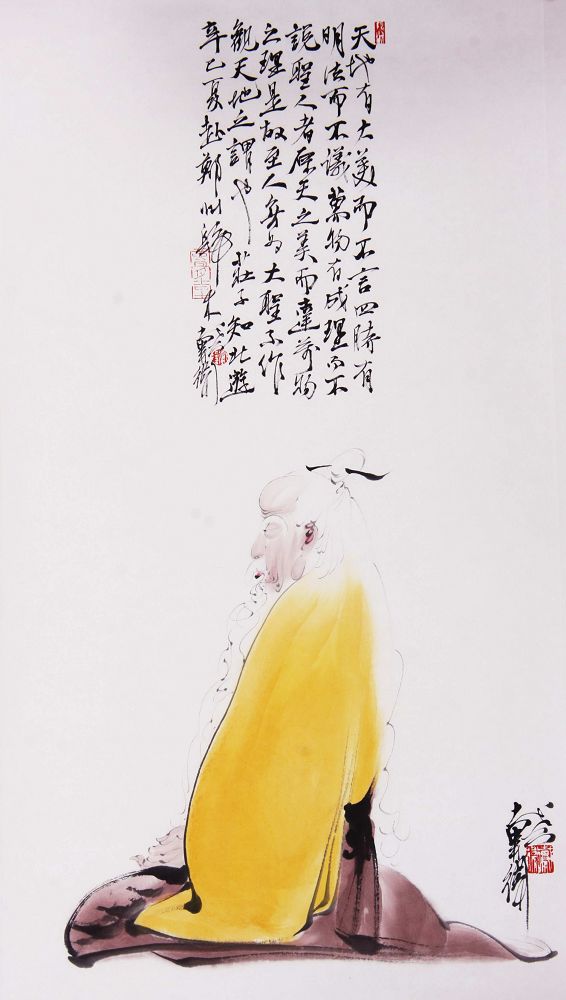 天地有大美而不言四時有
明法而不議萬物有成理而不
說聖人者原天之美而達萬物
之理是故至人無為大聖不作
觀天地之謂也 莊子知北遊
辛巳夏赴鄭州歸來 戴衛
戴衛